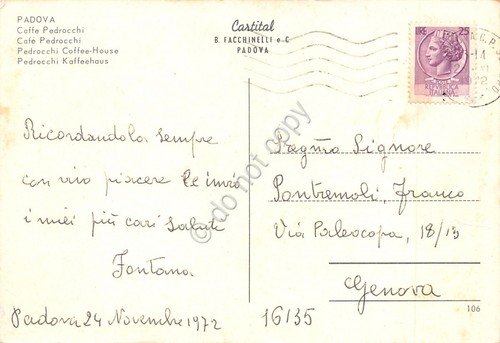 PADOVA
Caffè Pedrocchi
Café Pedrocchi
Pedrocchi Coffee-House
Pedrocchi Kaffeehaus
Cartital
B. FACCHINELLI e C
PADOVA
LIRE 25
Ricordandola sempre
con vivo piacere le invio
i miei più cari saluti
Fontana
Padova 24 Novembre 1972
Preg.mo Signore
Pontremoli, Franco
Via Paleocapa, 18/13
Genova
16135
106
do not copy